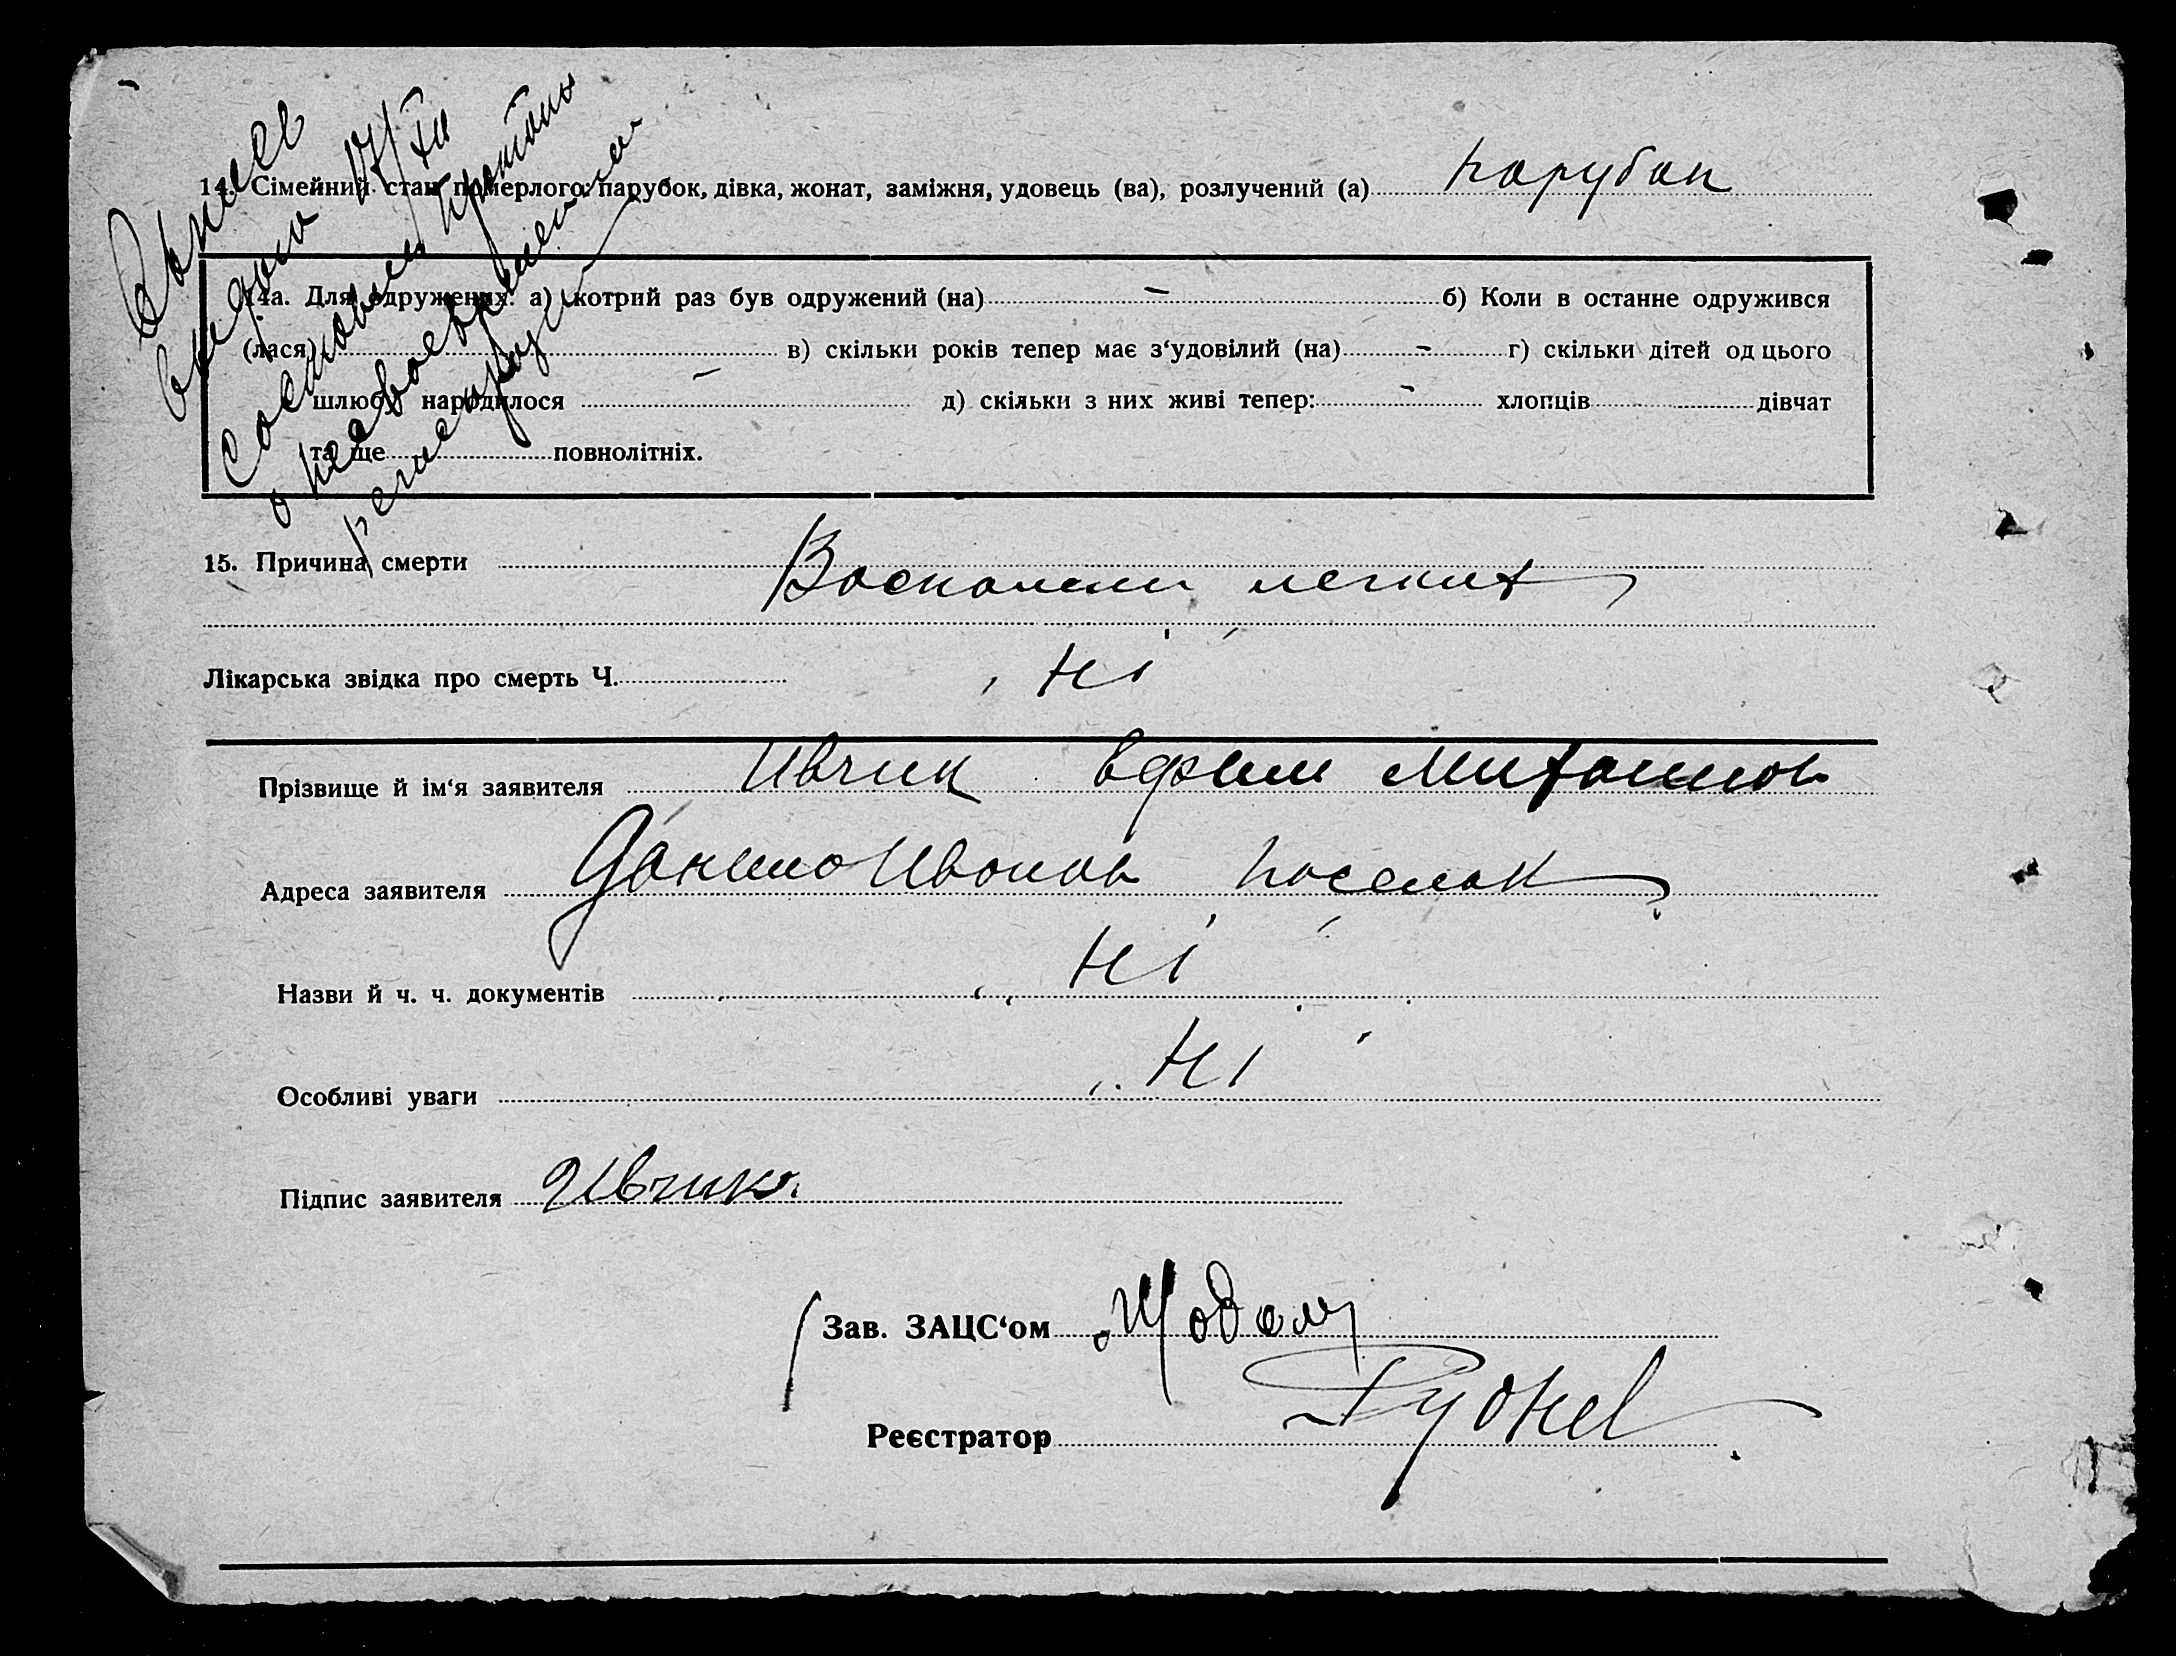 14. Сімейний стан померлого: парубок, дівка, жонат, заміжня, удовець (ва), розлучений (а) парубок
14а. Для одружених: а) котрий раз був одружений (на) – б) Коли в останне одружився
(лася) в) скільки років тепер має з‘удовілий (на) – г) скільки дітей од цього
шлюбу народилося – д) скільки з них живі тепер: – хлопців дівчат
та ще повнолітніх.
15. Причина смерти
Воспалени легких
Лікарська звідка про смерть Ч. Ні
Прізвище й ім‘я заявителя Ивчик Ефим
Адреса заявителя поселок
Назви й ч. ч. документів Ні
Особливі уваги Ні
Підпис заявителя Ивчик
Зав. ЗАЦС‘ом
Реєстратор
о несвоевременной
регистрации